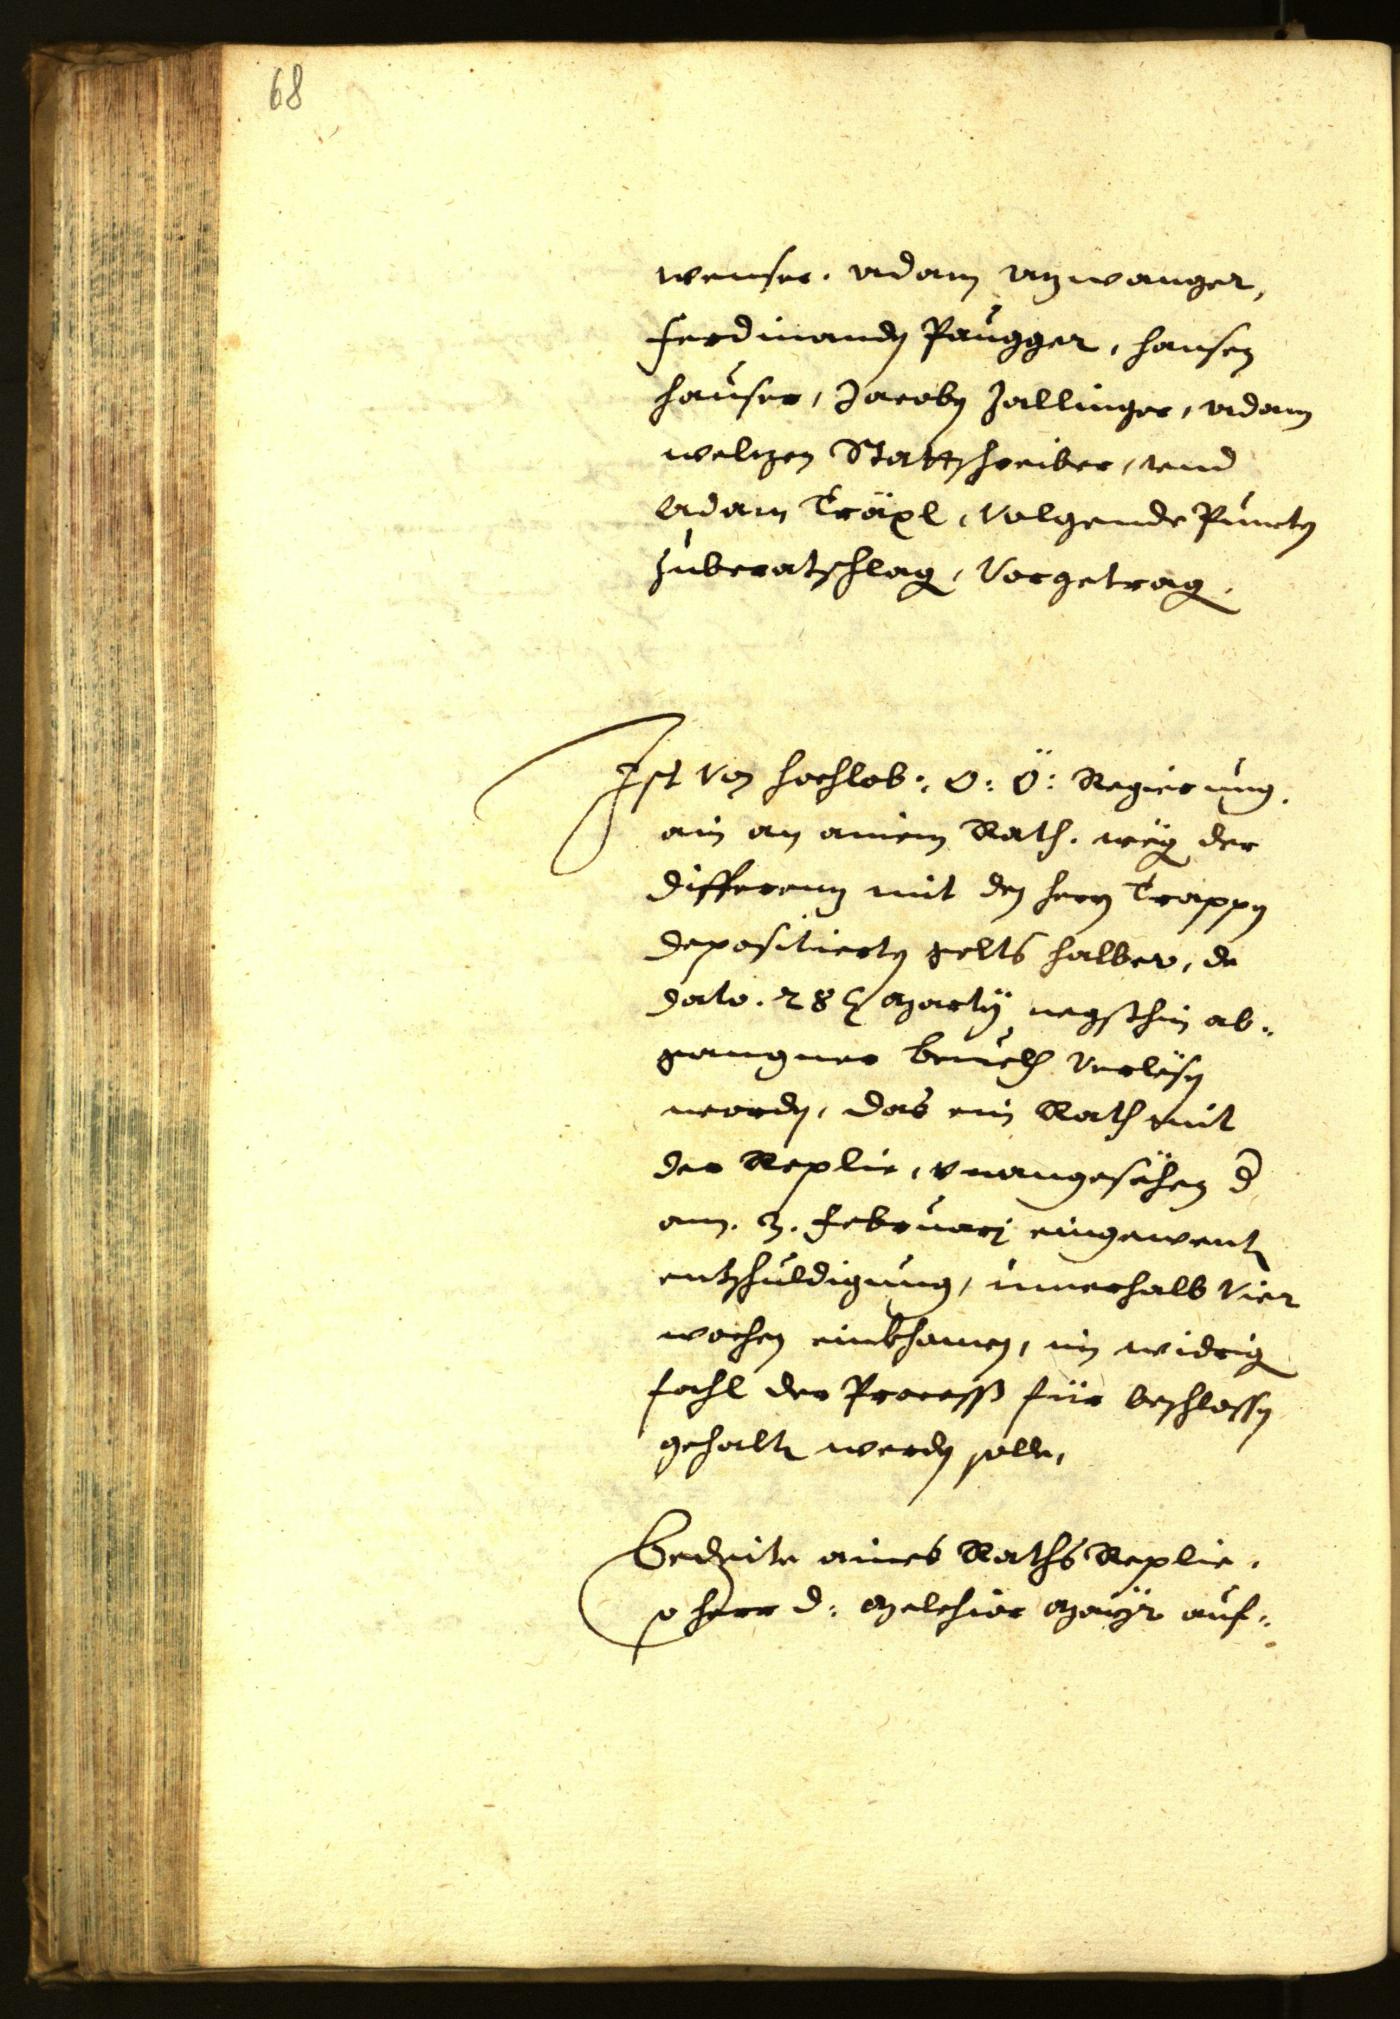 68
wenser, Adam Anwanger,
Ferdinandn Paugger, Hansen
Hauser, Jacobn Zallinger, Adam
welzen Stattschreiber, vnd
Adam Träxl, Volgende Punctn
zuberatschlag, Vorgetrag.
Ist Von hochlob: O: Ö: Regierung.
ain an ainem Rath. weg der
differenz mit den hern Trappn
depositiertn gelts halber, de
dato. 28 Martij negsthin ab-
gangner beuelh Verlesn
wordn, das ein Rath mit
der Replic, vnangesehen d
am. 3. Februarj eingewent
entschuldigung, innerhalb Vier
wochen einkhomen, im widrig
fahl der Process für beschlossn
gehaltn werdn solle,
Bedeite aines Raths Replic,
so herr D: Melchior Mayr auf-